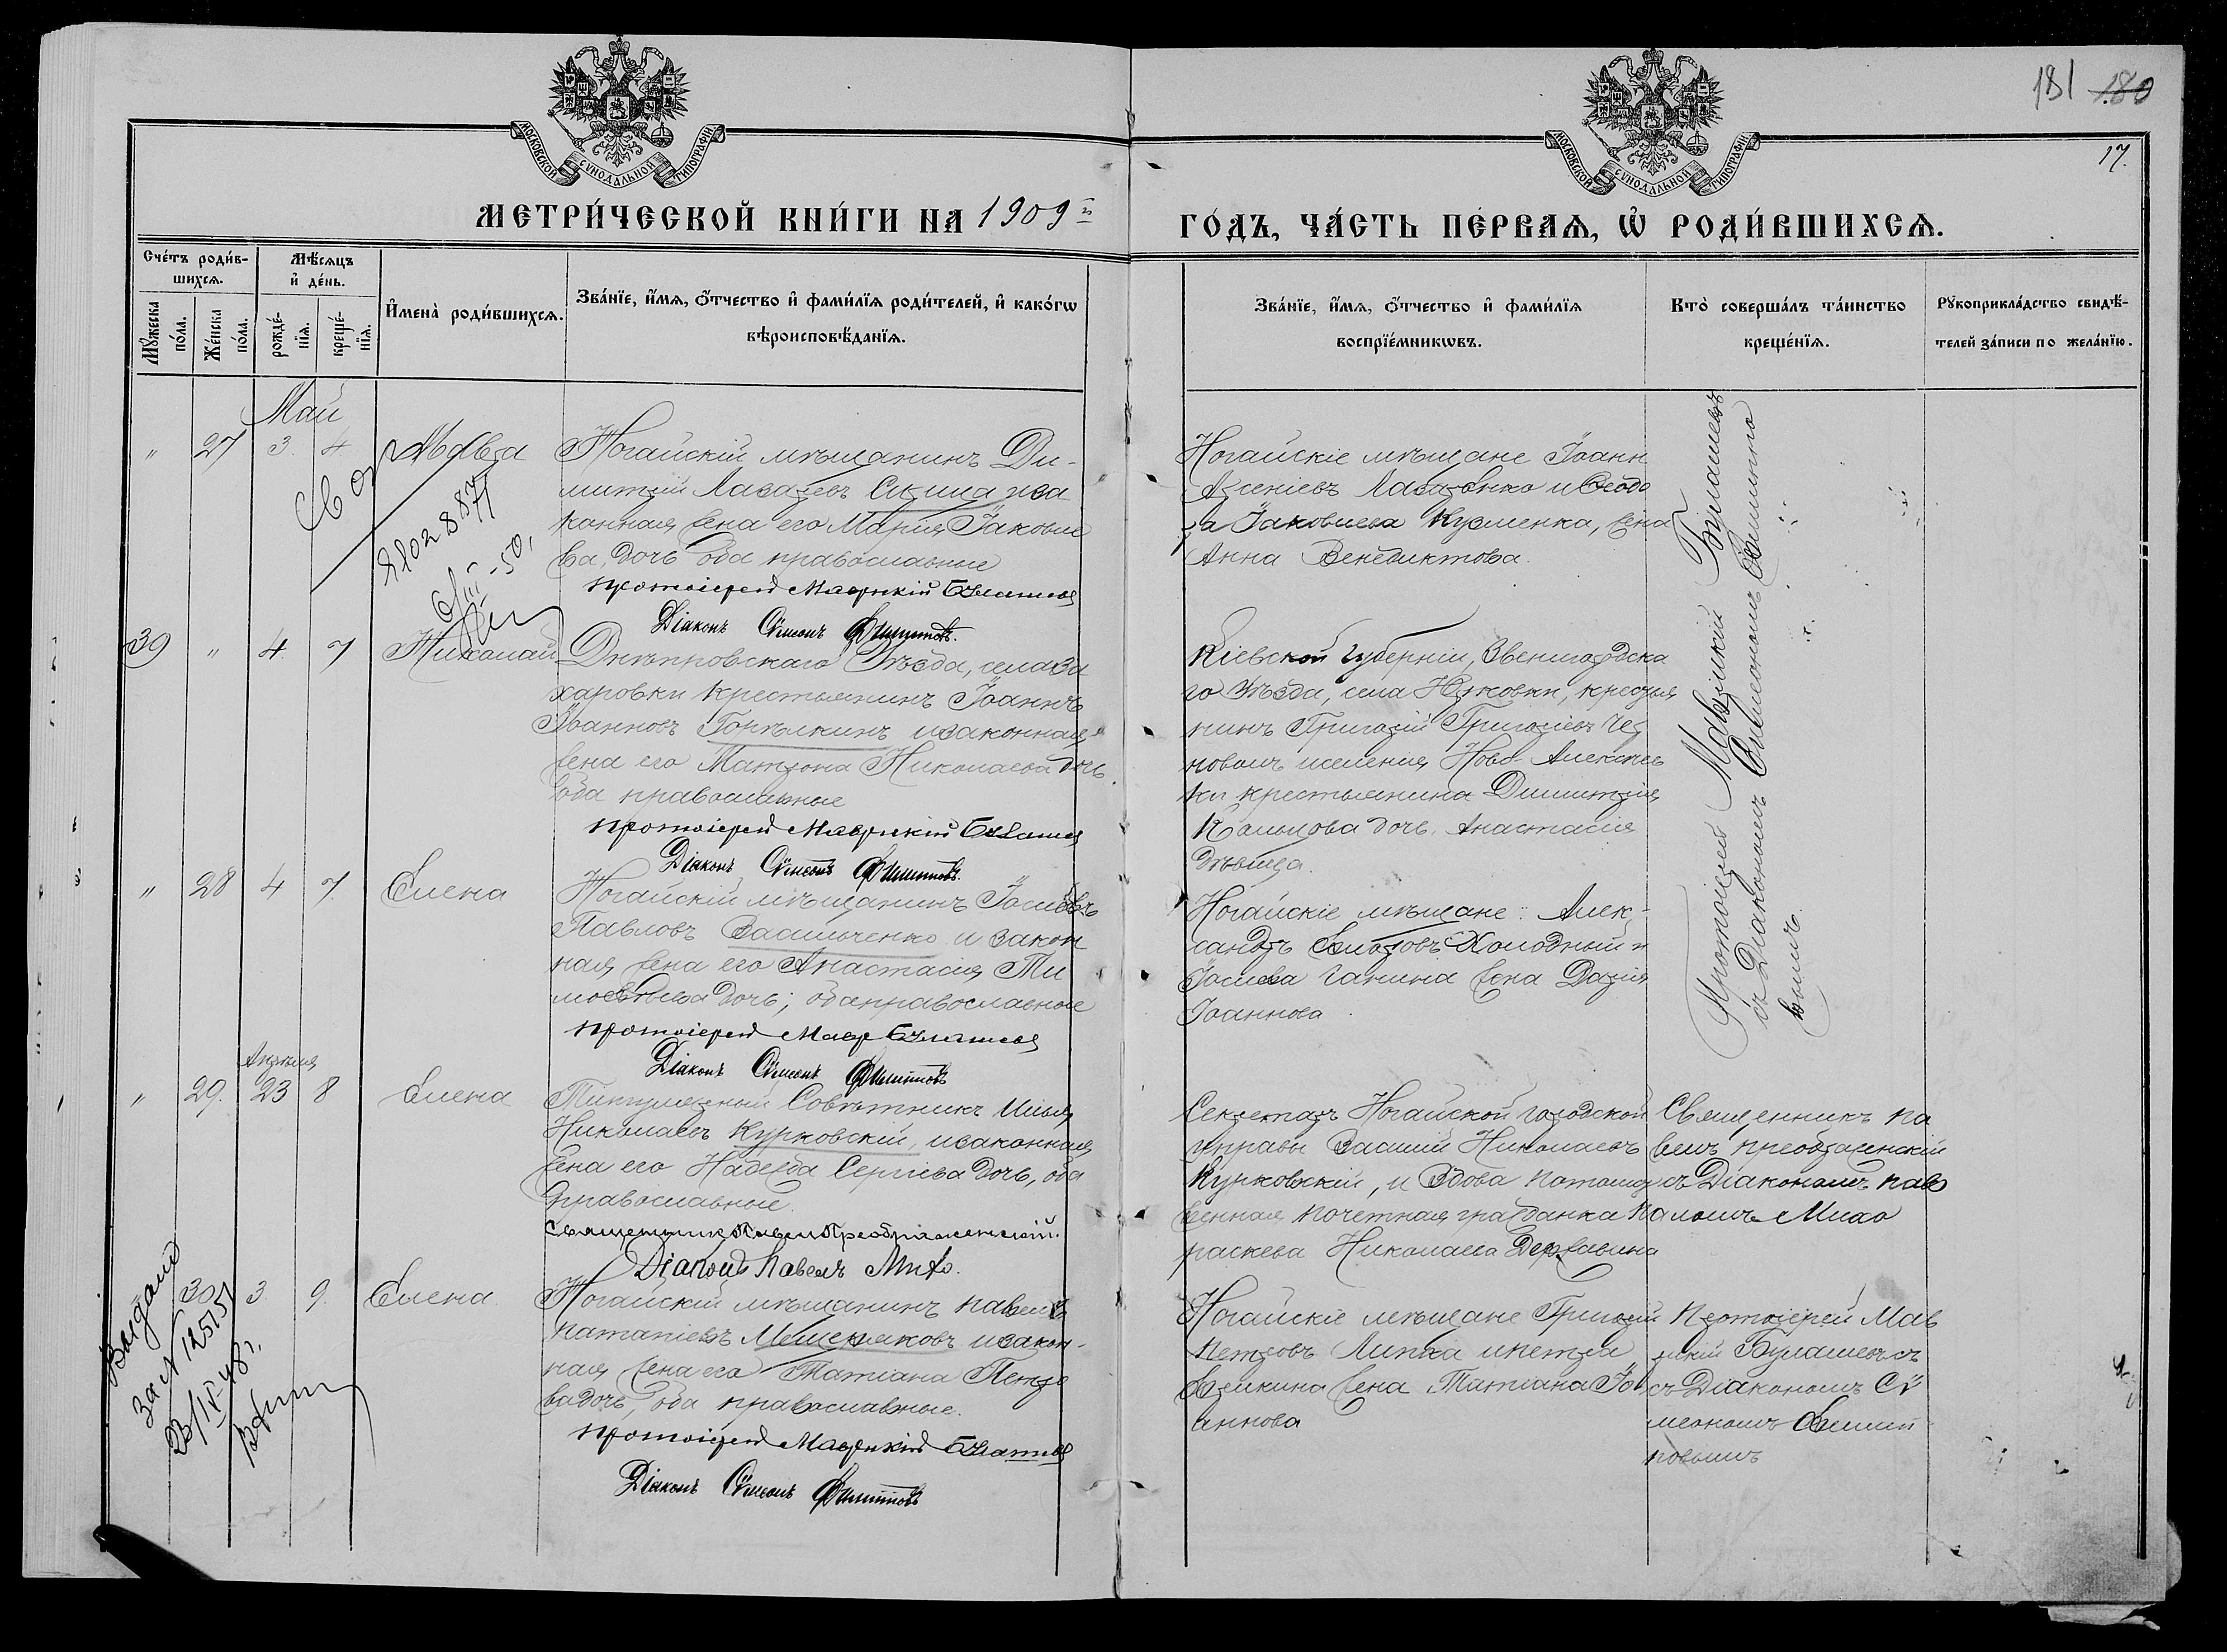 181 180
17.
МОСКОВСКОЙ СУНОДАЛЬНОЙ ТИПОГРАФІИ
МОСКОВСКОЙ СУНОДАЛЬНОЙ ТИПОГРАФІИ
МЕТРИ́ЧЕСКОЙ КНИ́ГИ НА 1909й
ГО́ДЪ, ЧА́СТЬ ПЕ́РВАѦ, Ѡ҆ РОДИ́ВШИХСѦ.
Сче́тъ роди́в-
шихсѧ.
Мѣ́сѧцъ
и҆ де́нь.
Мꙋ́жеска
по́ла.
Же́нска
по́ла.
рожде́-
нїѧ.
креще́-
нїѧ.
И҆мена̀ роди́вшихсѧ.
Зва́нїе, и҆́мѧ, ѻ҆́тчество и҆ фами́лїѧ роди́телей, и҆ како́гѡ
вѣроисповѣ́данїѧ.
Зва́нїе, и҆́мѧ, ѻ҆́тчество и҆ фами́лїѧ
воспрїе́мникѡвъ.
Кто̀ соверша́лъ та́инство
креще́нїѧ.
Рꙋкоприкла́дство свидѣ́-
телей за́писи по жела́нїю.
Май
" 27 3. 4
Ногайскій мѣщанинъ Ди-
митрій Лазаревъ
конная жена его Марія Іаковле
ва дочь оба православные
протоіерей Маврикій Булашевъ
Діаконъ Сѷмеонъ Филипповъ.
Ногайскіе мѣщане Іоаннъ
Арсеніевъ Лазаренко и Ѳеодо
ра Іаковлева Кузменка, жена
Анна Венедиктова.
Протоіерей Маврикій Булашевъ
съ Діакономъ Сѷмеономъ Филиппо
вымъ.
39 " 4. 7 Николай
Днѣпровскаго Уѣзда, села За
харовки крестьянинъ Іоаннъ
Іоанновъ Горѣлкинъ и законная
жена его Матрона Николаева дочь
оба православные
протоіерей Маврикій Булашевъ
Діаконъ Сѷмеонъ Филипповъ.
Кіевской губерніи, Звенигородска
го Уѣзда, села Юрковки, крестья
нинъ Григорій Григоріевъ Чер
новолъ и селенія Ново Алексѣев
ки крестьянина Димитрія
Кольцова дочь, Анастасія
дѣвица.
" 28 4 7. Елена
Ногайскій мѣщанинъ Іосифъ
Павловъ Васильченко и закон
ная жена его Анастасія Ти
моѳеева дочь; оба православные
протоіерей Мавр Булашевъ
Діаконъ Сѷмеонъ Филипповъ
Ногайскіе мѣщане: Алек-
сандръ Холодный и
Іосифа Ганина жена Дарія
Іоаннова.
Апрѣля
" 29. 23 8 Елена
Титулярный Совѣтникъ Илья
Николаевъ Курковскій, и законная
жена его Надежда Сергіева дочь, оба
православные.
Священникъ Павелъ Преображенскій.
Діаконъ Павелъ Михо.
Секретарь Ногайской городской
управы Василій Николаевъ
Курковскій, и вдова потомст
венная почетная гражданка Па
раскева Николаева Державина
Священникъ Па
велъ Преображенскій
съ Діакономъ Пав
ломъ Михо
30. 3. 9. Елена.
Ногайскій мѣщанинъ Павелъ
Мещеряковъ и закон-
ная жена его Татіана Петро
ва дочь, оба православные.
протоіерей Маврикій Булашевъ
Діаконъ Сѷмеонъ Филипповъ
Ногайскіе мѣщане Григорій
Петровъ Липка и Петра
жена Татіана Іо
аннова
Протоіерей Мав
рикій Булашевъ съ
съ Діакономъ Сѷ
меономъ Филип
повымъ
Выдано
за № 12515
23/IV-48г.